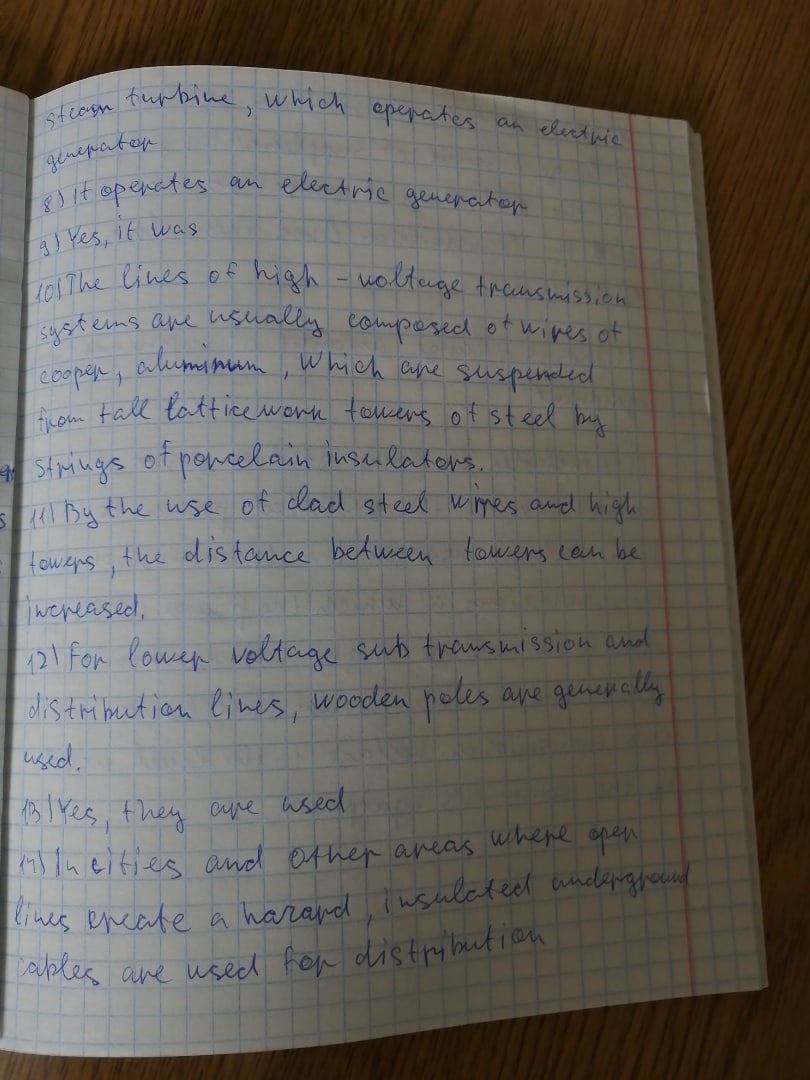 steam turbine, which operates an electric
generator
8) It operates an electric generator
9) Yes, it was
10) The lines of high - voltage transmission
systems are usually composed of wires of
cooper, aluminum, which are suspended
from tall latticework towers of steel by
strings of porcelain insulators.
11) By the use of clad steel wires and high
towers, the distance between towers can be
increased.
12) For lower voltage sub transmission and
distribution lines, wooden poles are generally
used.
13) Yes, they are used
14) In cities and other areas where open
lines create a hazard, insulated underground
cables are used for distribution